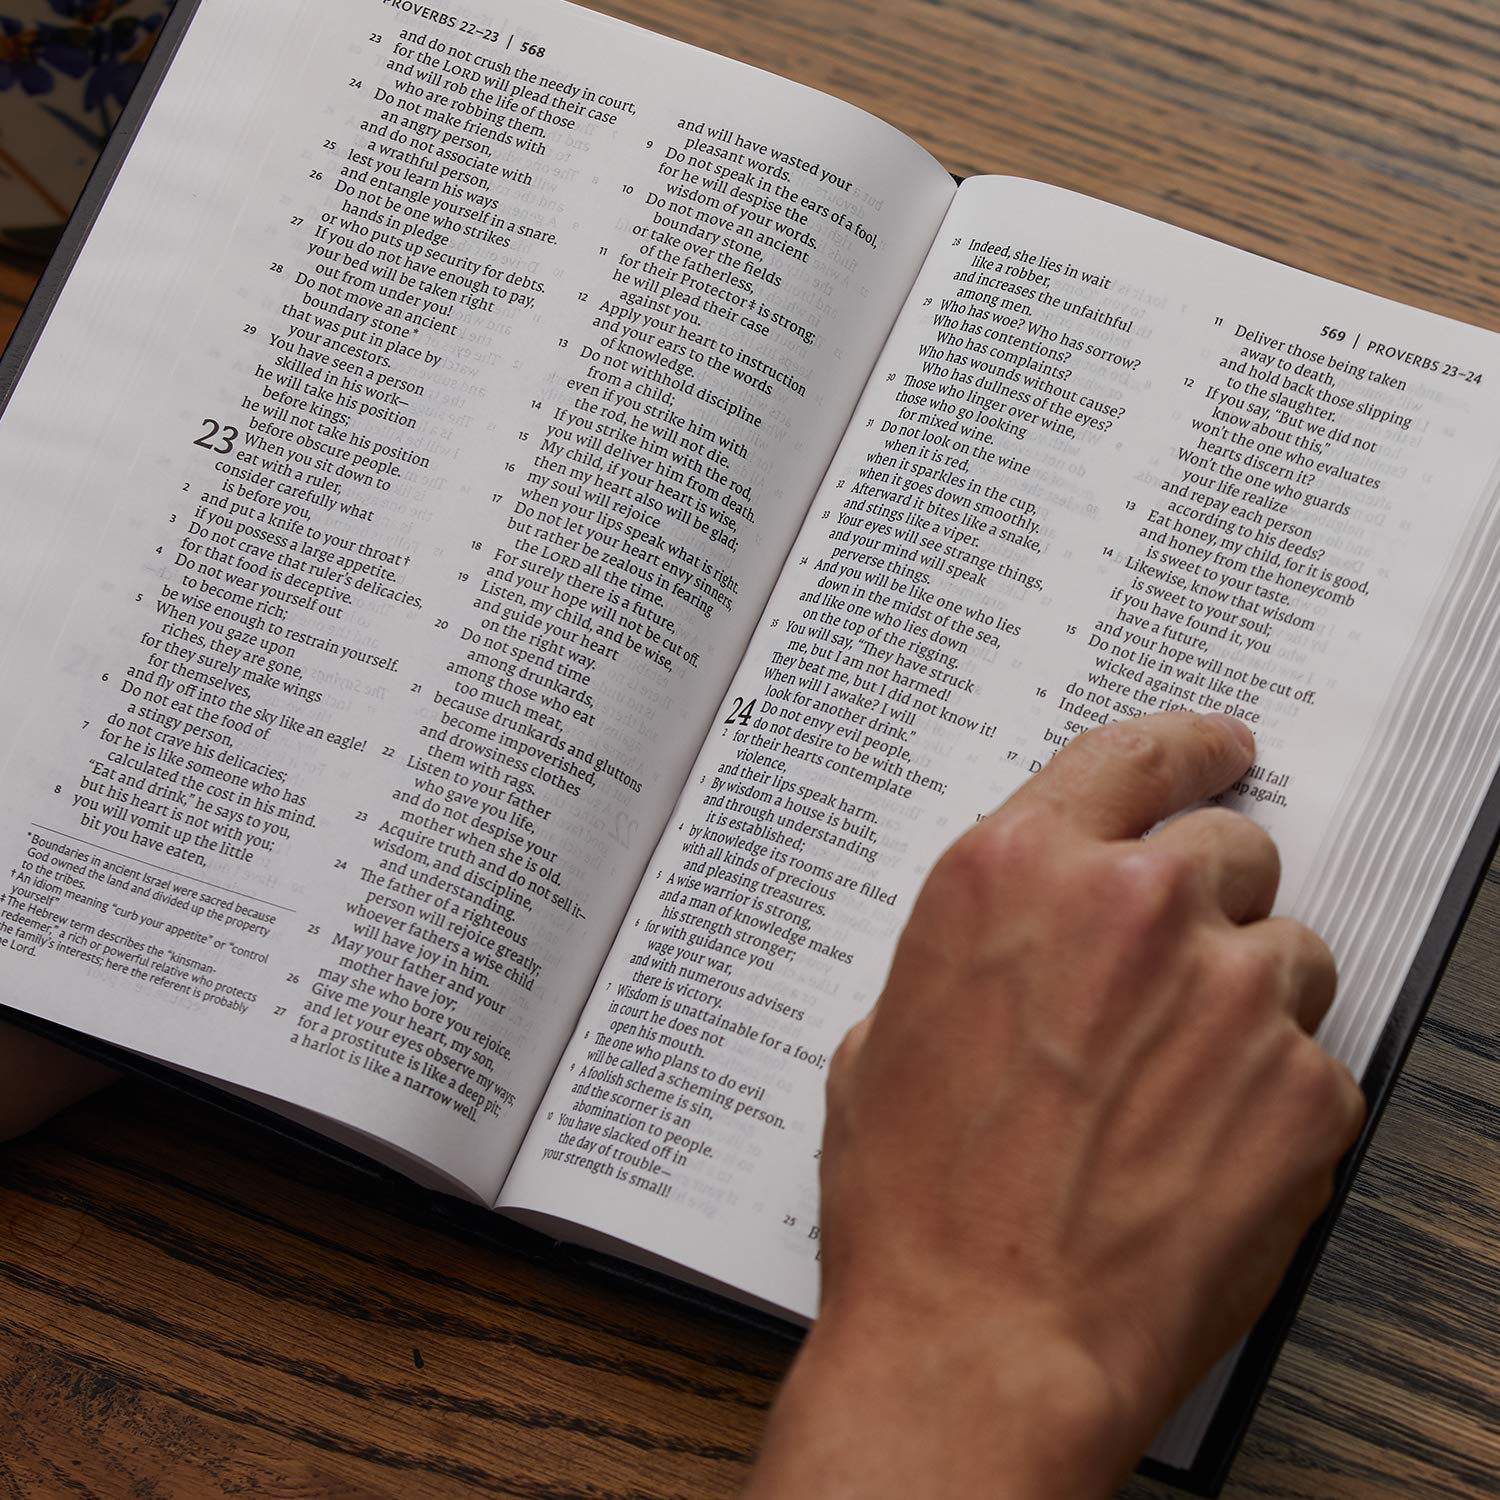 PROVERBS 22–23 | 568
23 and do not crush the needy in court,
for the LORD will plead their case
and will rob the life of those
who are robbing them.
24 Do not make friends with
an angry person,
and do not associate with
a wrathful person,
25 lest you learn his ways
and entangle yourself in a snare.
26 Do not be one who strikes
hands in pledge
or who puts up security for debts.
27 If you do not have enough to pay,
your bed will be taken right
out from under you!
28 Do not move an ancient
boundary stone*
that was put in place by
your ancestors.
29 You have seen a person
skilled in his work—
he will take his position
before kings;
he will not take his position
before obscure people.
23 When you sit down to
eat with a ruler,
consider carefully what
is before you,
2 and put a knife to your throat†
if you possess a large appetite.
3 Do not crave that ruler's delicacies,
for that food is deceptive.
4 Do not wear yourself out
to become rich;
be wise enough to restrain yourself.
5 When you gaze upon
riches, they are gone,
for they surely make wings
for themselves,
and fly off into the sky like an eagle!
6 Do not eat the food of
a stingy person,
do not crave his delicacies;
7 for he is like someone who has
calculated the cost in his mind.
"Eat and drink," he says to you,
but his heart is not with you;
8 you will vomit up the little
bit you have eaten,
*Boundaries in ancient Israel were sacred because
God owned the land and divided up the property
to the tribes.
†An idiom meaning "curb your appetite" or "control
yourself"
‡The Hebrew term describes the "kinsman-
redeemer," a rich or powerful relative who protects
the family's interests; here the referent is probably
Lord.
and will have wasted your
pleasant words.
9 Do not speak in the ears of a fool,
for he will despise the
wisdom of your words.
10 Do not move an ancient
boundary stone,
or take over the fields
of the fatherless,
11 for their Protector‡ is strong;
he will plead their case
against you.
12 Apply your heart to instruction
and your ears to the words
of knowledge.
13 Do not withhold discipline
from a child;
even if you strike him with
the rod, he will not die.
14 If you strike him with the rod,
you will deliver him from death.
15 My child, if your heart is wise,
then my heart also will be glad;
16 my soul will rejoice
when your lips speak what is right.
17 Do not let your heart envy sinners,
but rather be zealous in fearing
the LORD all the time.
18 For surely there is a future,
and your hope will not be cut off.
19 Listen, my child, and be wise,
and guide your heart
on the right way.
20 Do not spend time
among drunkards,
among those who eat
too much meat,
21 because drunkards and gluttons
become impoverished,
and drowsiness clothes
them with rags.
22 Listen to your father
who gave you life,
and do not despise your
mother when she is old.
23 Acquire truth and do not sell it—
wisdom, and discipline,
and understanding.
24 The father of a righteous
person will rejoice greatly;
whoever fathers a wise child
will have joy in him.
25 May your father and your
mother have joy;
may she who bore you rejoice.
26 Give me your heart, my son,
and let your eyes observe my ways;
27 for a prostitute is like a deep pit;
a harlot is like a narrow well.
569 | PROVERBS 23–24
28 Indeed, she lies in wait
like a robber,
and increases the unfaithful
among men.
29 Who has woe? Who has sorrow?
Who has contentions?
Who has complaints?
Who has wounds without cause?
Who has dullness of the eyes?
30 Those who linger over wine,
those who go looking
for mixed wine.
31 Do not look on the wine
when it is red,
when it sparkles in the cup,
when it goes down smoothly.
32 Afterward it bites like a snake,
and stings like a viper.
33 Your eyes will see strange things,
and your mind will speak
perverse things.
34 And you will be like one who lies
down in the midst of the sea,
and like one who lies down
on the top of the rigging.
35 You will say, "They have struck
me, but I am not harmed!
They beat me, but I did not know it!
When will I awake? I will
look for another drink."
24 Do not envy evil people,
do not desire to be with them;
2 for their hearts contemplate
violence,
and their lips speak harm.
3 By wisdom a house is built,
and through understanding
it is established;
4 by knowledge its rooms are filled
with all kinds of precious
and pleasing treasures.
5 A wise warrior is strong,
and a man of knowledge makes
his strength stronger;
6 for with guidance you
wage your war,
and with numerous advisers
there is victory.
7 Wisdom is unattainable for a fool;
in court he does not
open his mouth.
8 The one who plans to do evil
will be called a scheming person.
9 A foolish scheme is sin,
and the scorner is an
abomination to people.
10 You have slacked off in
the day of trouble—
your strength is small!
11 Deliver those being taken
away to death,
and hold back those slipping
to the slaughter.
12 If you say, "But we did not
know about this,"
won't the one who evaluates
hearts discern it?
Won't the one who guards
your life realize
and repay each person
according to his deeds?
13 Eat honey, my child, for it is good,
and honey from the honeycomb
is sweet to your taste.
14 Likewise, know that wisdom
is sweet to your soul;
if you have found it, you
have a future,
and your hope will not be cut off.
15 Do not lie in wait like the
wicked against the place
where the
do not
16 Indeed
will fall
up again,
but
17
18
25